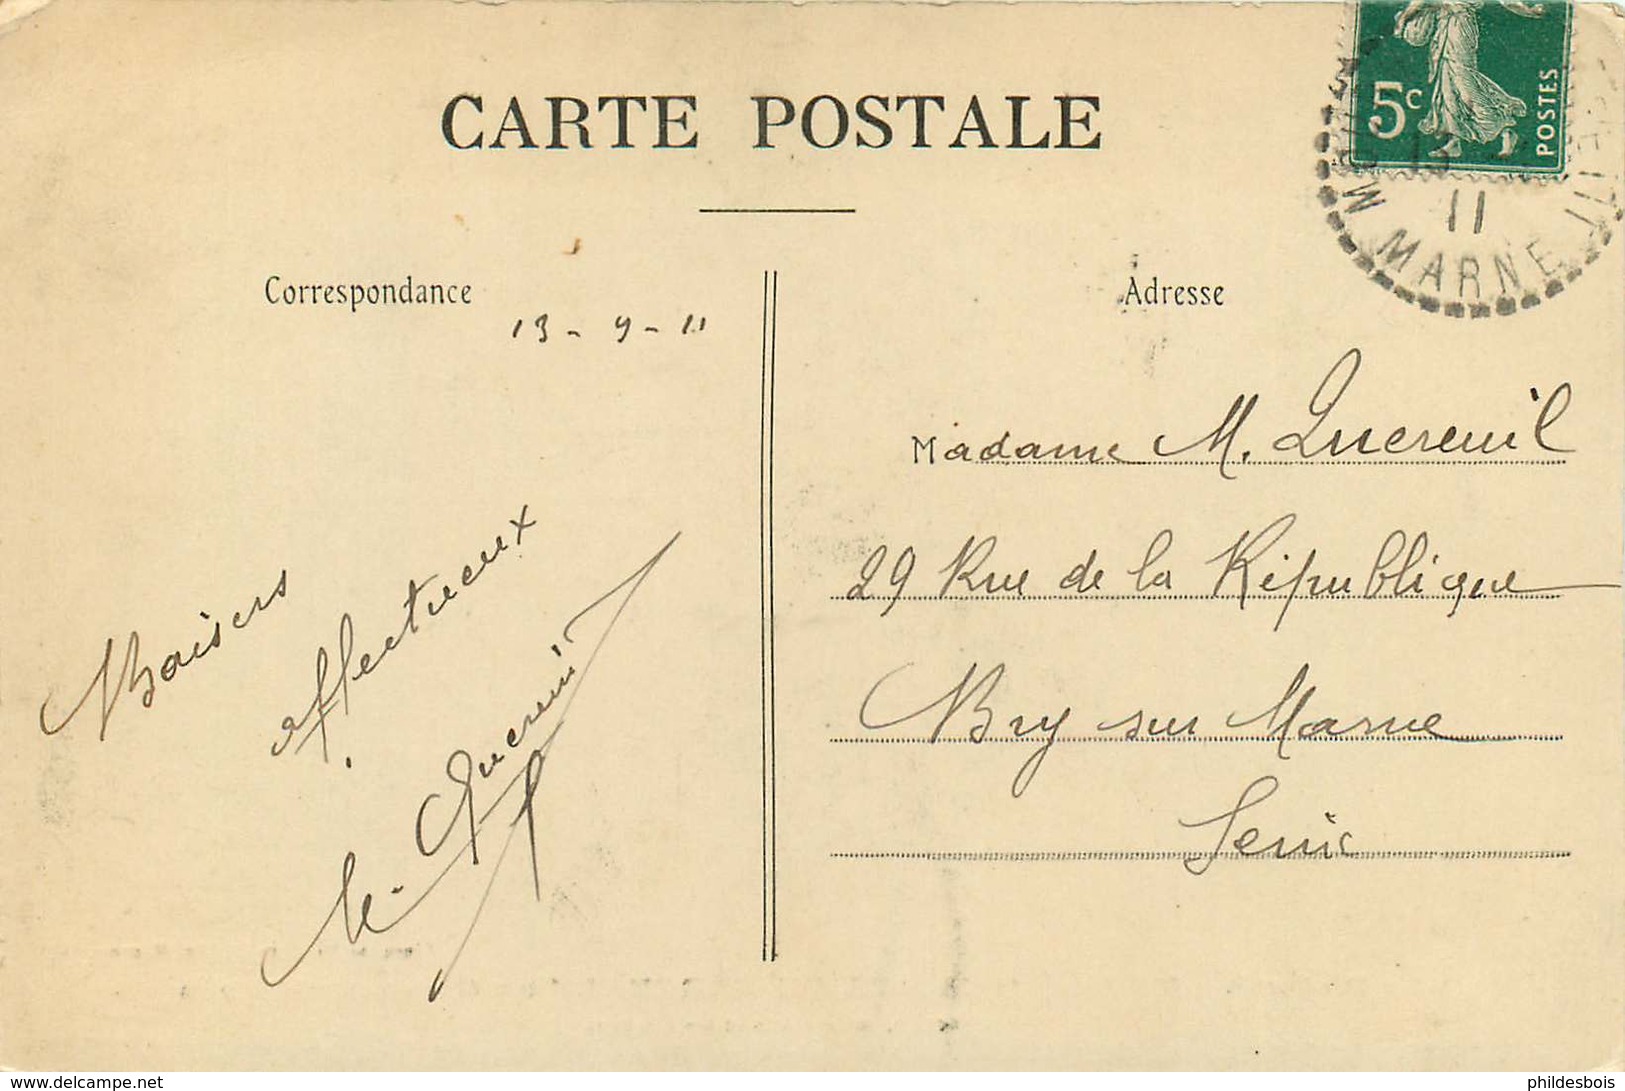 CARTE POSTALE
5c
POSTES
13
11
MARNE
Correspondance
Adresse
13 - 9 - 11
Madame M. Quereuil
29 Rue de la République
Bry sur Marne
Seine
Baisers
affectueux
M. Quereuil
www.delcampe.net
phildesbois